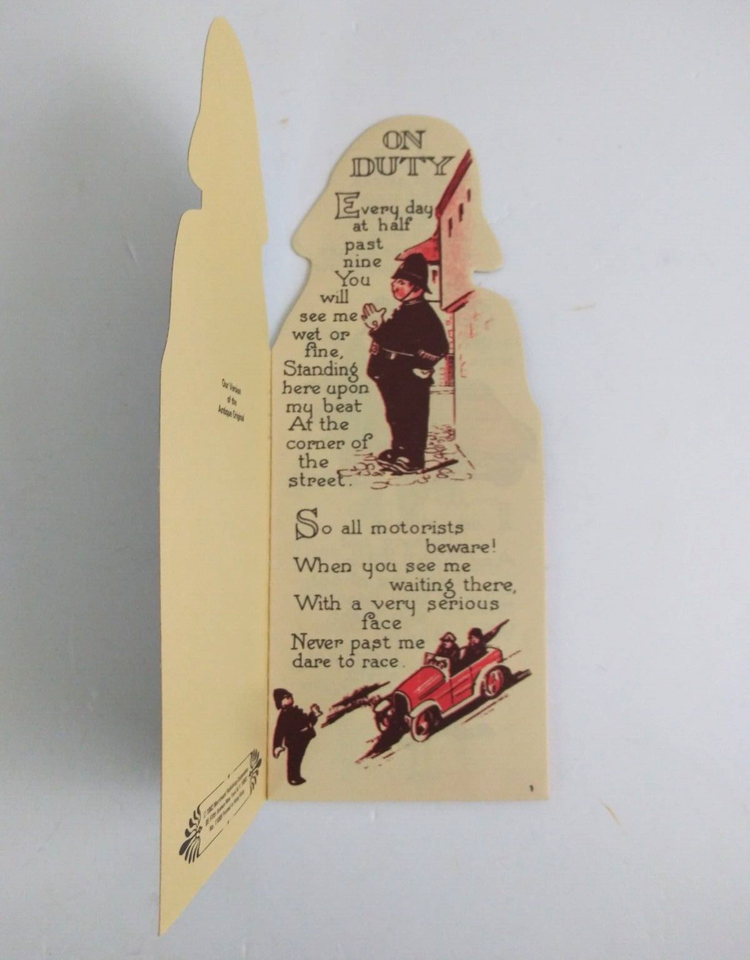 Our Version
of the
Antique Original
ON
DUTY
Every day
at half
past
nine
You
will
see me
wet or
fine,
Standing
here upon
my beat
At the
corner of
the
street.
So all motorists
beware!
When you see me
waiting there,
With a very serious
face
Never past me
dare to race.
1